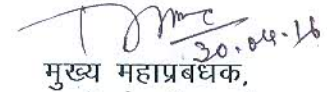 30.04.16
मुख्य महाप्रबंधक,